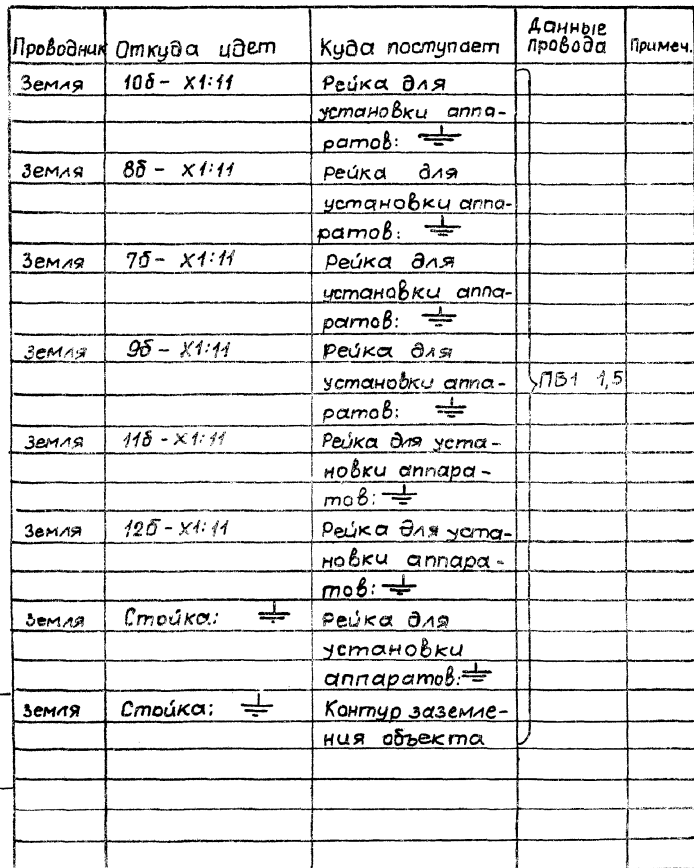 Проводник Откуда идет Куда поступает Данные провода Примеч.
Земля 10б - X1:11 Рейка для
установки аппа-
ратов: ⏚
Земля 8б - X1:11 Рейка для
установки аппа-
ратов: ⏚
Земля 7б - X1:11 Рейка для
установки аппа-
ратов: ⏚
Земля 9б - X1:11 Рейка для
установки аппа- ПВ1 1,5
ратов: ⏚
Земля 11б - X1:11 Рейка для уста-
новки аппара-
тов: ⏚
Земля 12б - X1:11 Рейка для уста-
новки аппара-
тов: ⏚
Земля Стойка: ⏚ Рейка для
установки
аппаратов: ⏚
Земля Стойка: ⏚ Контур заземле-
ния объекта